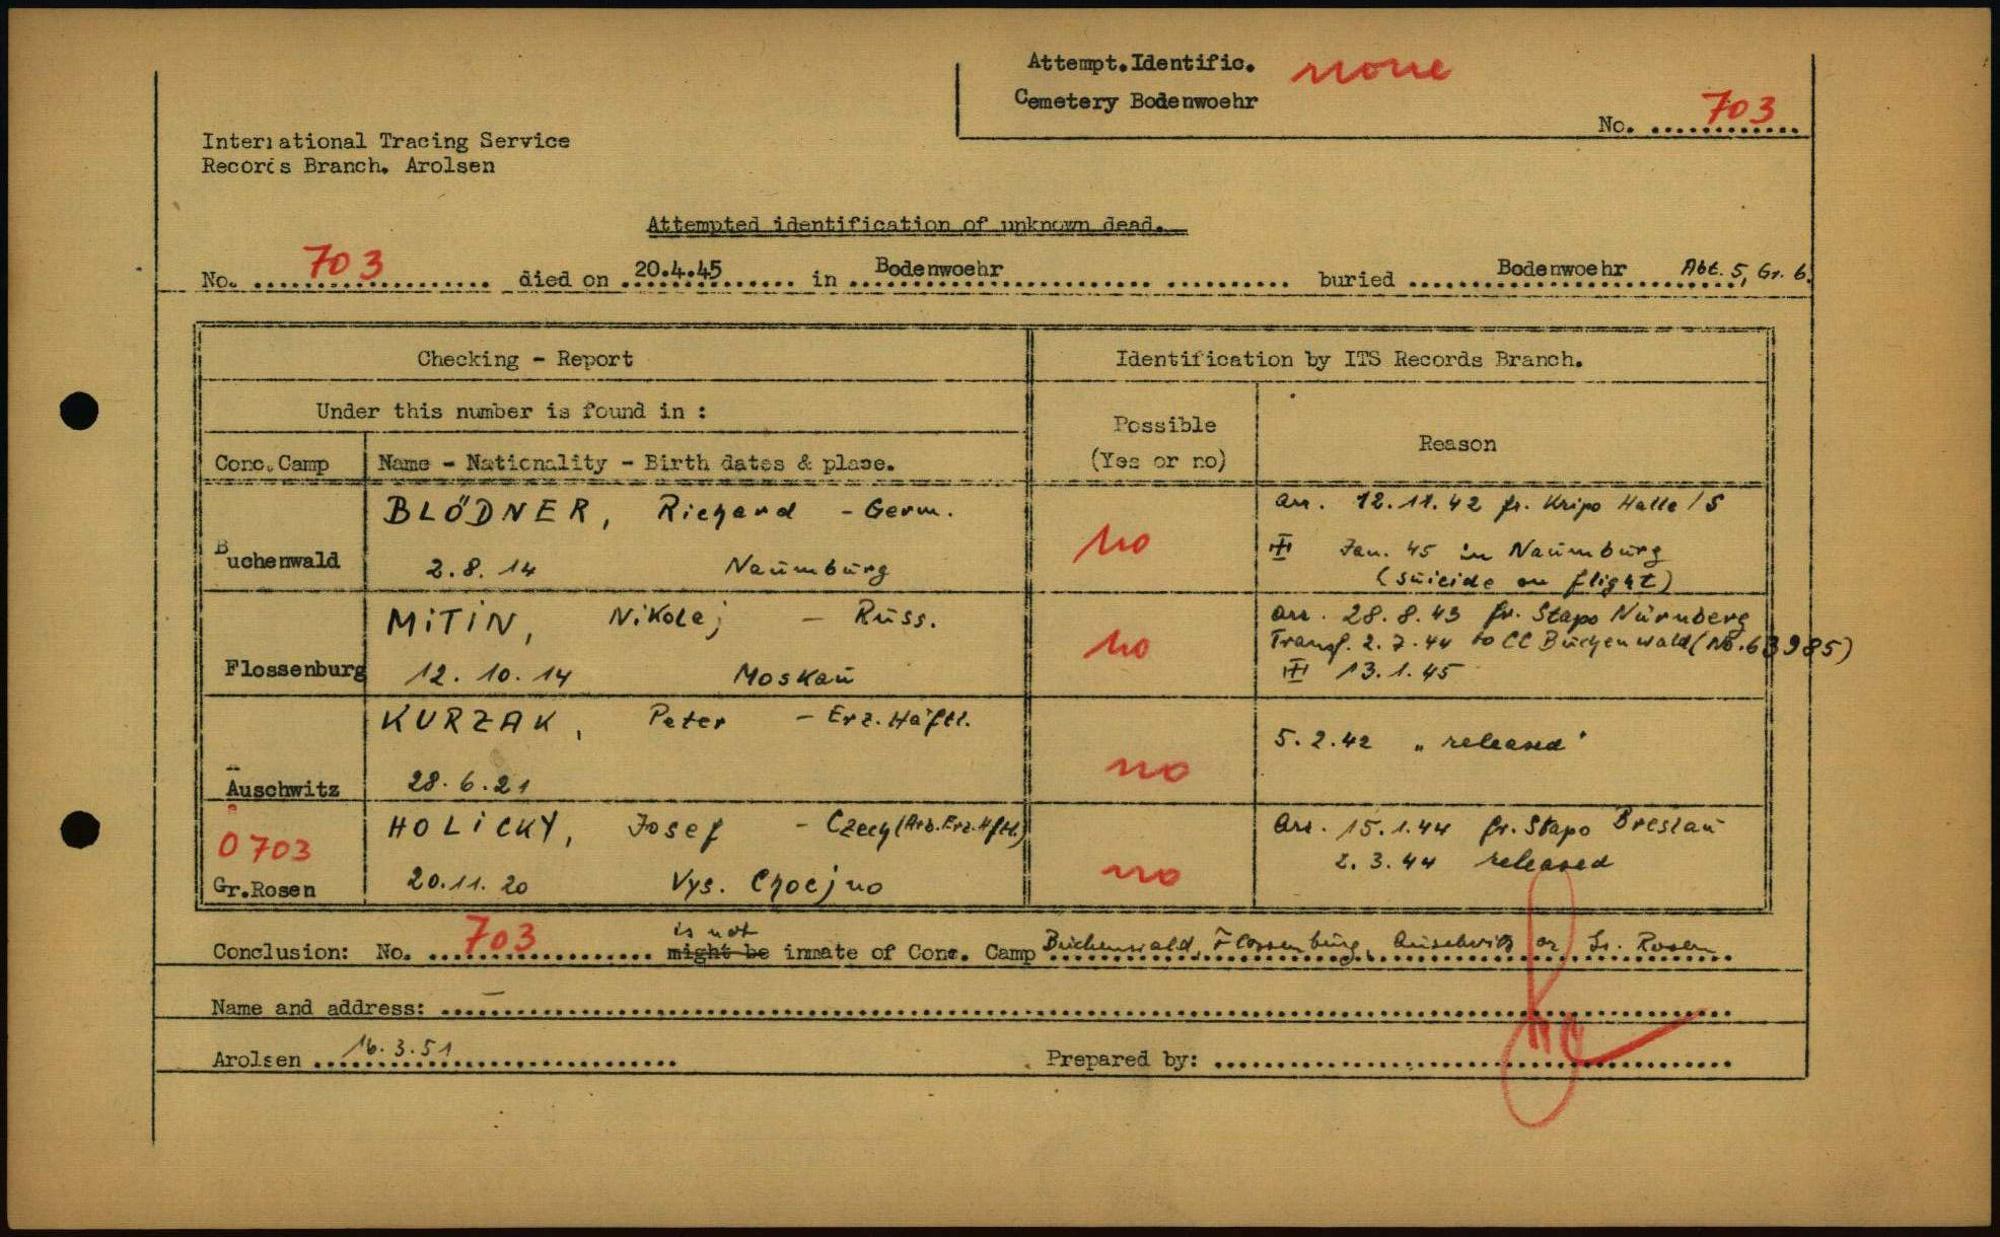 Attempt. Identific. none
Cemetery Bodenwoehr
No. 703
International Tracing Service
Records Branch. Arolsen
Attempted identification of unknown dead.
No. 703 died on 20.4.45 in Bodenwoehr buried Bodenwoehr Abt. 5, Gr. 6.
Checking - Report
Identification by ITS Records Branch.
Under this number is found in :
Possible
(Yes or no)
Reason
Conc. Camp
Name - Nationality - Birth dates & place.
Buchenwald
BLÖDNER, Richard - Germ.
2.8.14 Naumburg
no
arr. 12.11.42 fr. Kripo Halle/S
Jan. 45 in Naumburg
(suicide on flight)
Flossenburg
MITIN, Nikolaj - Russ.
12.10.14 Moskau
no
arr. 28.8.43 fr. Stapo Nürnberg
Transf. 2.7.44 to CC Buchenwald (No. 63985)
13.1.45
Auschwitz
KURZAK, Peter - Erz. Häftl.
28.6.21
no
5.2.42 "released"
0703
Gr.Rosen
HOLICKY, Josef - Czech (Arb. Erz. Hftl.)
20.11.20 Vys. Chocjno
no
Arr. 15.1.44 fr. Stapo Breslau
2.3.44 released
is not
Conclusion: No. 703 might be inmate of Conc. Camp Buchenwald, Flossenburg, Auschwitz or Gr. Rosen
Name and address: -
Arolsen 16.3.51
Prepared by: